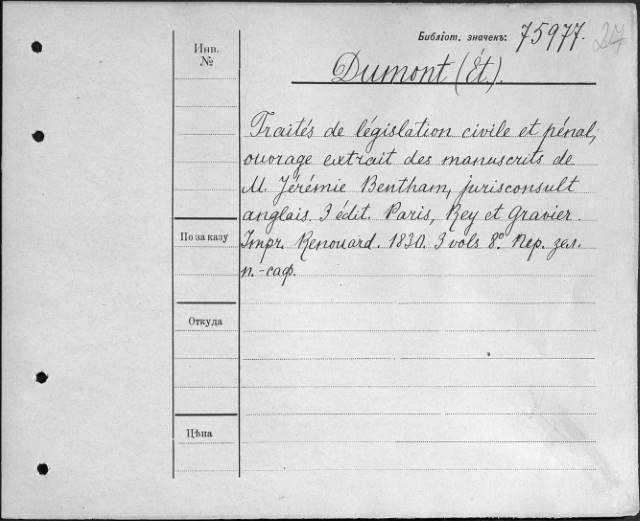 Библіот. значекъ: 75977. 27
Инв.
№
Dumont (Ét.).
Traités de législation civile et pénal,
ouvrage extrait des manuscrits de
M. Jérémie Bentham, jurisconsult
anglais. 3 édit. Paris, Rey et Gravier.
По заказу
Impr. Renouard. 1830. 3 vols 8º. Пер. зел.
п.-саф.
Откуда
Цѣна